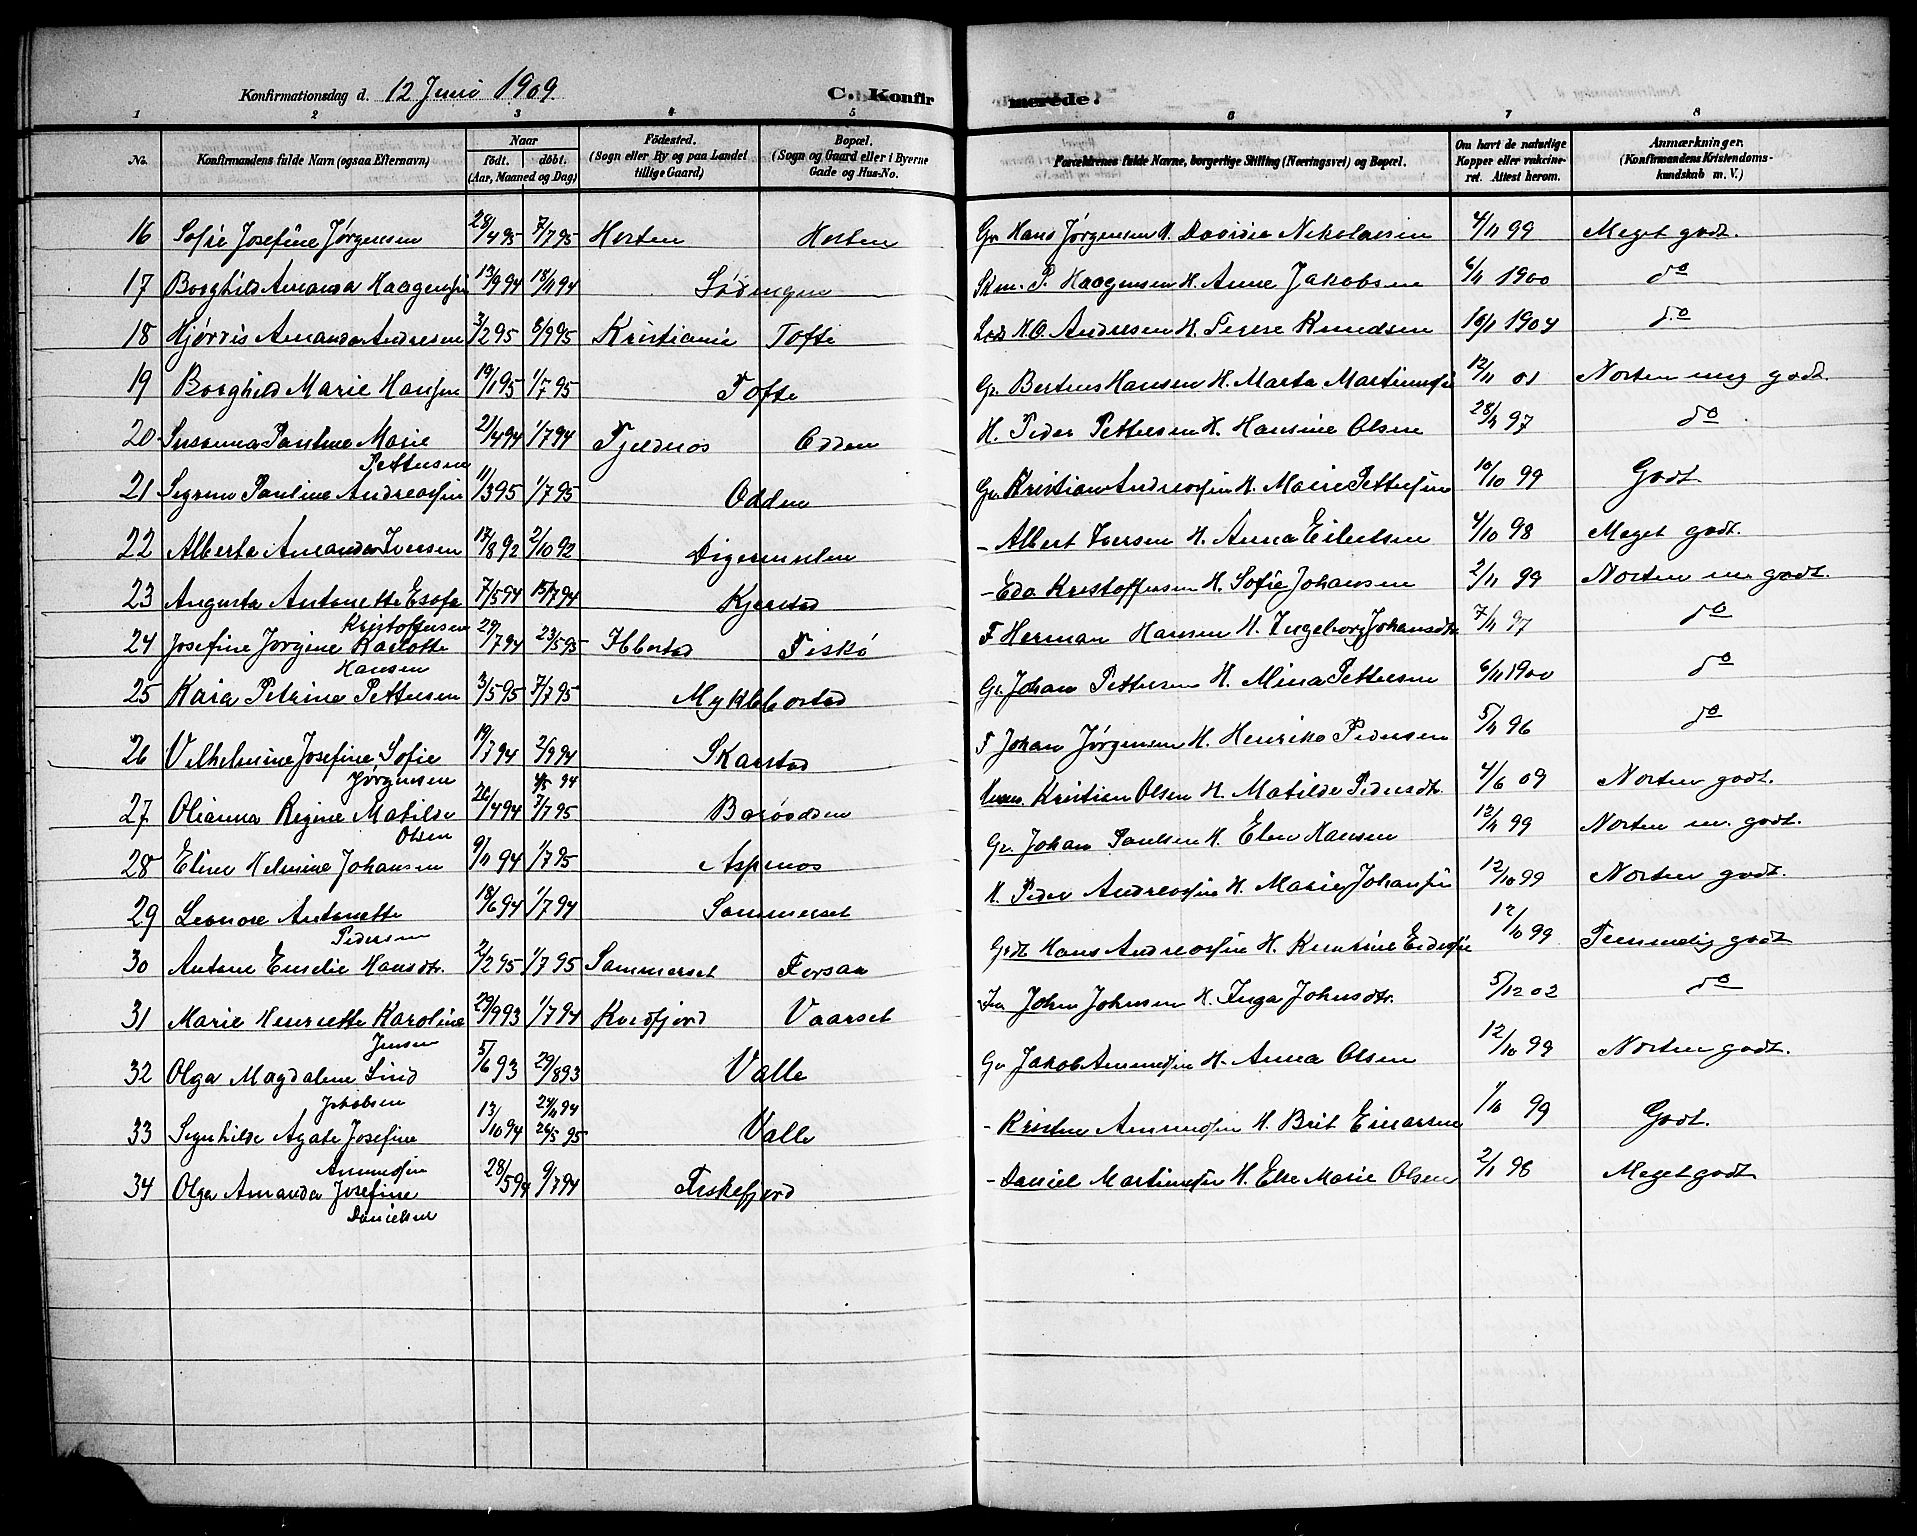 Konfirmationsdag d. 12 Juni 1909. C. Konfirmerede.
1 2 3 4 5 6 7 8
No. Konfirmandens fulde Navn (ogsaa Efternavn) Naar født. døbt. (Aar, Maaned og Dag) Fødested. (Sogn eller By og paa Landet tillige Gaard) Bopæl. (Sogn og Gaard eller i Byerne Gade og Hus-No. Forældrenes fulde Navne, borgerlige Stilling (Næringsvei) og Bopæl. Om havt de naturlige Kopper eller vakcineret. Attest herom. Anmærkninger. (Konfirmandens Kristendomskundskab m. V.)
16 Sofie Josefine Jørgensen 28/4 95 7/7 95 Horten Horten Gr Hans Jørgensen H. Davidia Nikolaisen 4/11 99 Meget godt.
17 Borghild Amanda Haagensen 13/9 94 18/11 94 Lødingen P. Haagensen H. Anne Jakobsen 6/11 1900 do
18 Hjørdis Amanda Andresen 3/2 95 8/9 95 Kristiania Tofte H.O. Andresen H. Knudsen 10/1 1904 do
19 Borghild Marie Hansen 19/1 95 1/7 95 Tofte Gr. Berteus Hansen H. Marta 12/11 01 Norsten meg godt.
20 Susanna Pauline Marie Pettersen 21/4 94 1/7 94 Fjeldnes Odden H. Peder Pettersen H. Hansine Olsen 28/11 97 do
21 Sigrun Pauline Andreassen 11/3 95 1/7 95 Odden Gr Kristian Andreassen H. Marie Pettersen 10/10 99 Godt
22 Alberta Amanda Iversen 17/8 92 2/10 92 Digermulen - Albert Iversen H. Anna Eilertsen 4/10 98 Meget godt.
23 Augusta Antonette Esofa Kristoffersen 7/5 94 15/7 94 Kjerstad - Kristoffersen H. Sofie Johansen 2/11 99 Norsten m godt.
24 Josefine Jørgine Karlotte Hansen 29/7 94 23/5 95 Ibbestad Fiskø F Herman Hansen H. Ingeborg Johansdtr 7/11 97 do
25 Kaia Petrine Pettersen 3/5 95 7/7 95 Myklebostad Gr. Johan Pettersen H. Mina Pettersen 6/11 1900 do
26 Vilhelmine Josefine Sofie Jørgensen 19/7 94 2/9 94 Skarstad F Johan Jørgensen H. Henrika Pedersen 5/11 96 do
27 Olianna Regine Matilde Olsen 26/4 94 4/5 94 7/7 95 Barøodden Kristian Olsen H. Matilde Pedersdtr. 4/6 09 Norsten godt.
28 Eline Helmine Johansen 9/11 94 1/7 95 Aspenes Gr. Johan Paulsen H. Elen Hansen 12/11 99 Norsten m. godt.
29 Leonore Antonette Pedersen 18/6 94 1/7 94 Sommerset H. Peder Andreassen H. Marie Johansen 12/10 99 Norsten godt.
30 Antone Emelie Hansdtr. 2/2 95 1/7 95 Sommerset Forsaa Hans Andreassen H. 12/10 99 Temmelig godt
31 Marie Henriette Karoline Jensen 29/9 93 1/7 94 Kvedfjord Vaarset Johan Johnsen H. Inga Johnsdtr. 5/12 02 do
32 Olga Magdalene Lind Jakobsen 5/6 93 29/8 93 Valle Gr Jakob Amundsen H. Anna Olsen 12/10 99 Norsten godt.
33 Signhilde Agate Josefine Amundsen 13/10 94 24/11 94 26/5 95 Valle - Kristen Amundsen H. Brit Einarsen 1/10 99 Godt.
34 Olga Amanda Josefine Danielsen 28/5 94 9/7 94 Fiskefjord - Daniel Martinussen H. Else Marie Olsen 2/1 98 Meget godt